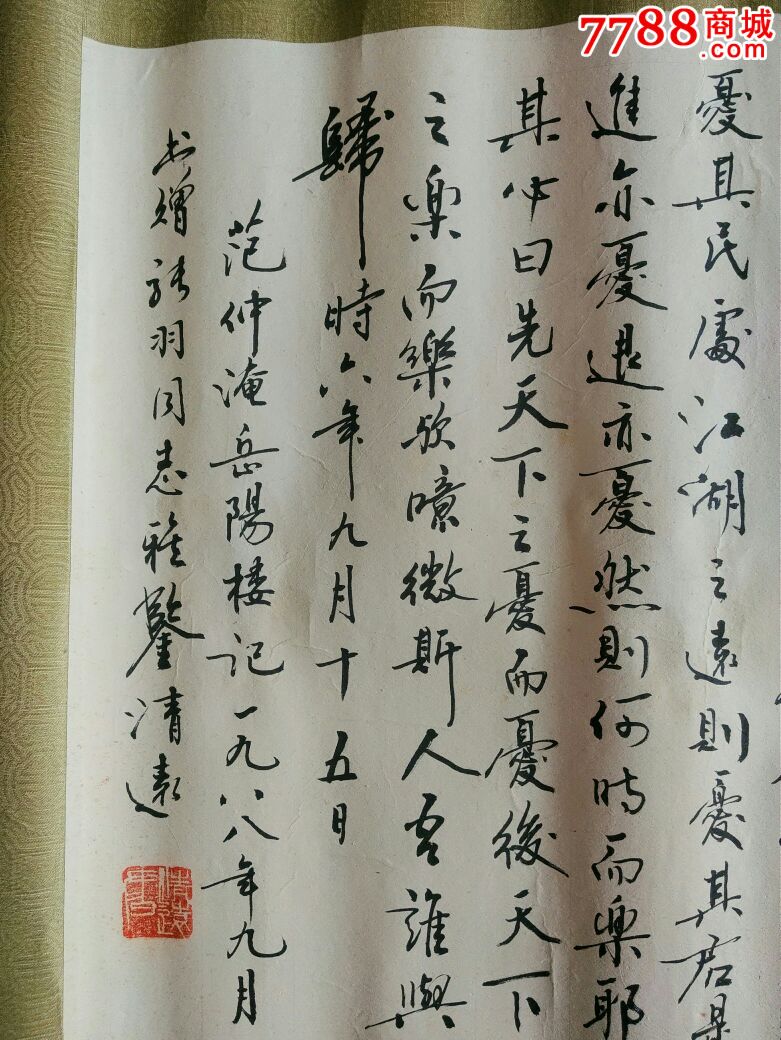 7788商城
.com
憂其民處江湖之遠則憂其君是
進亦憂退亦憂然則何時而樂耶
其必曰先天下之憂而憂後天下
之樂而樂歟噫微斯人吾誰與
歸時六年九月十五日
范仲淹岳陽楼记一九八八年九月
书赠羽同志雅鑒清遠